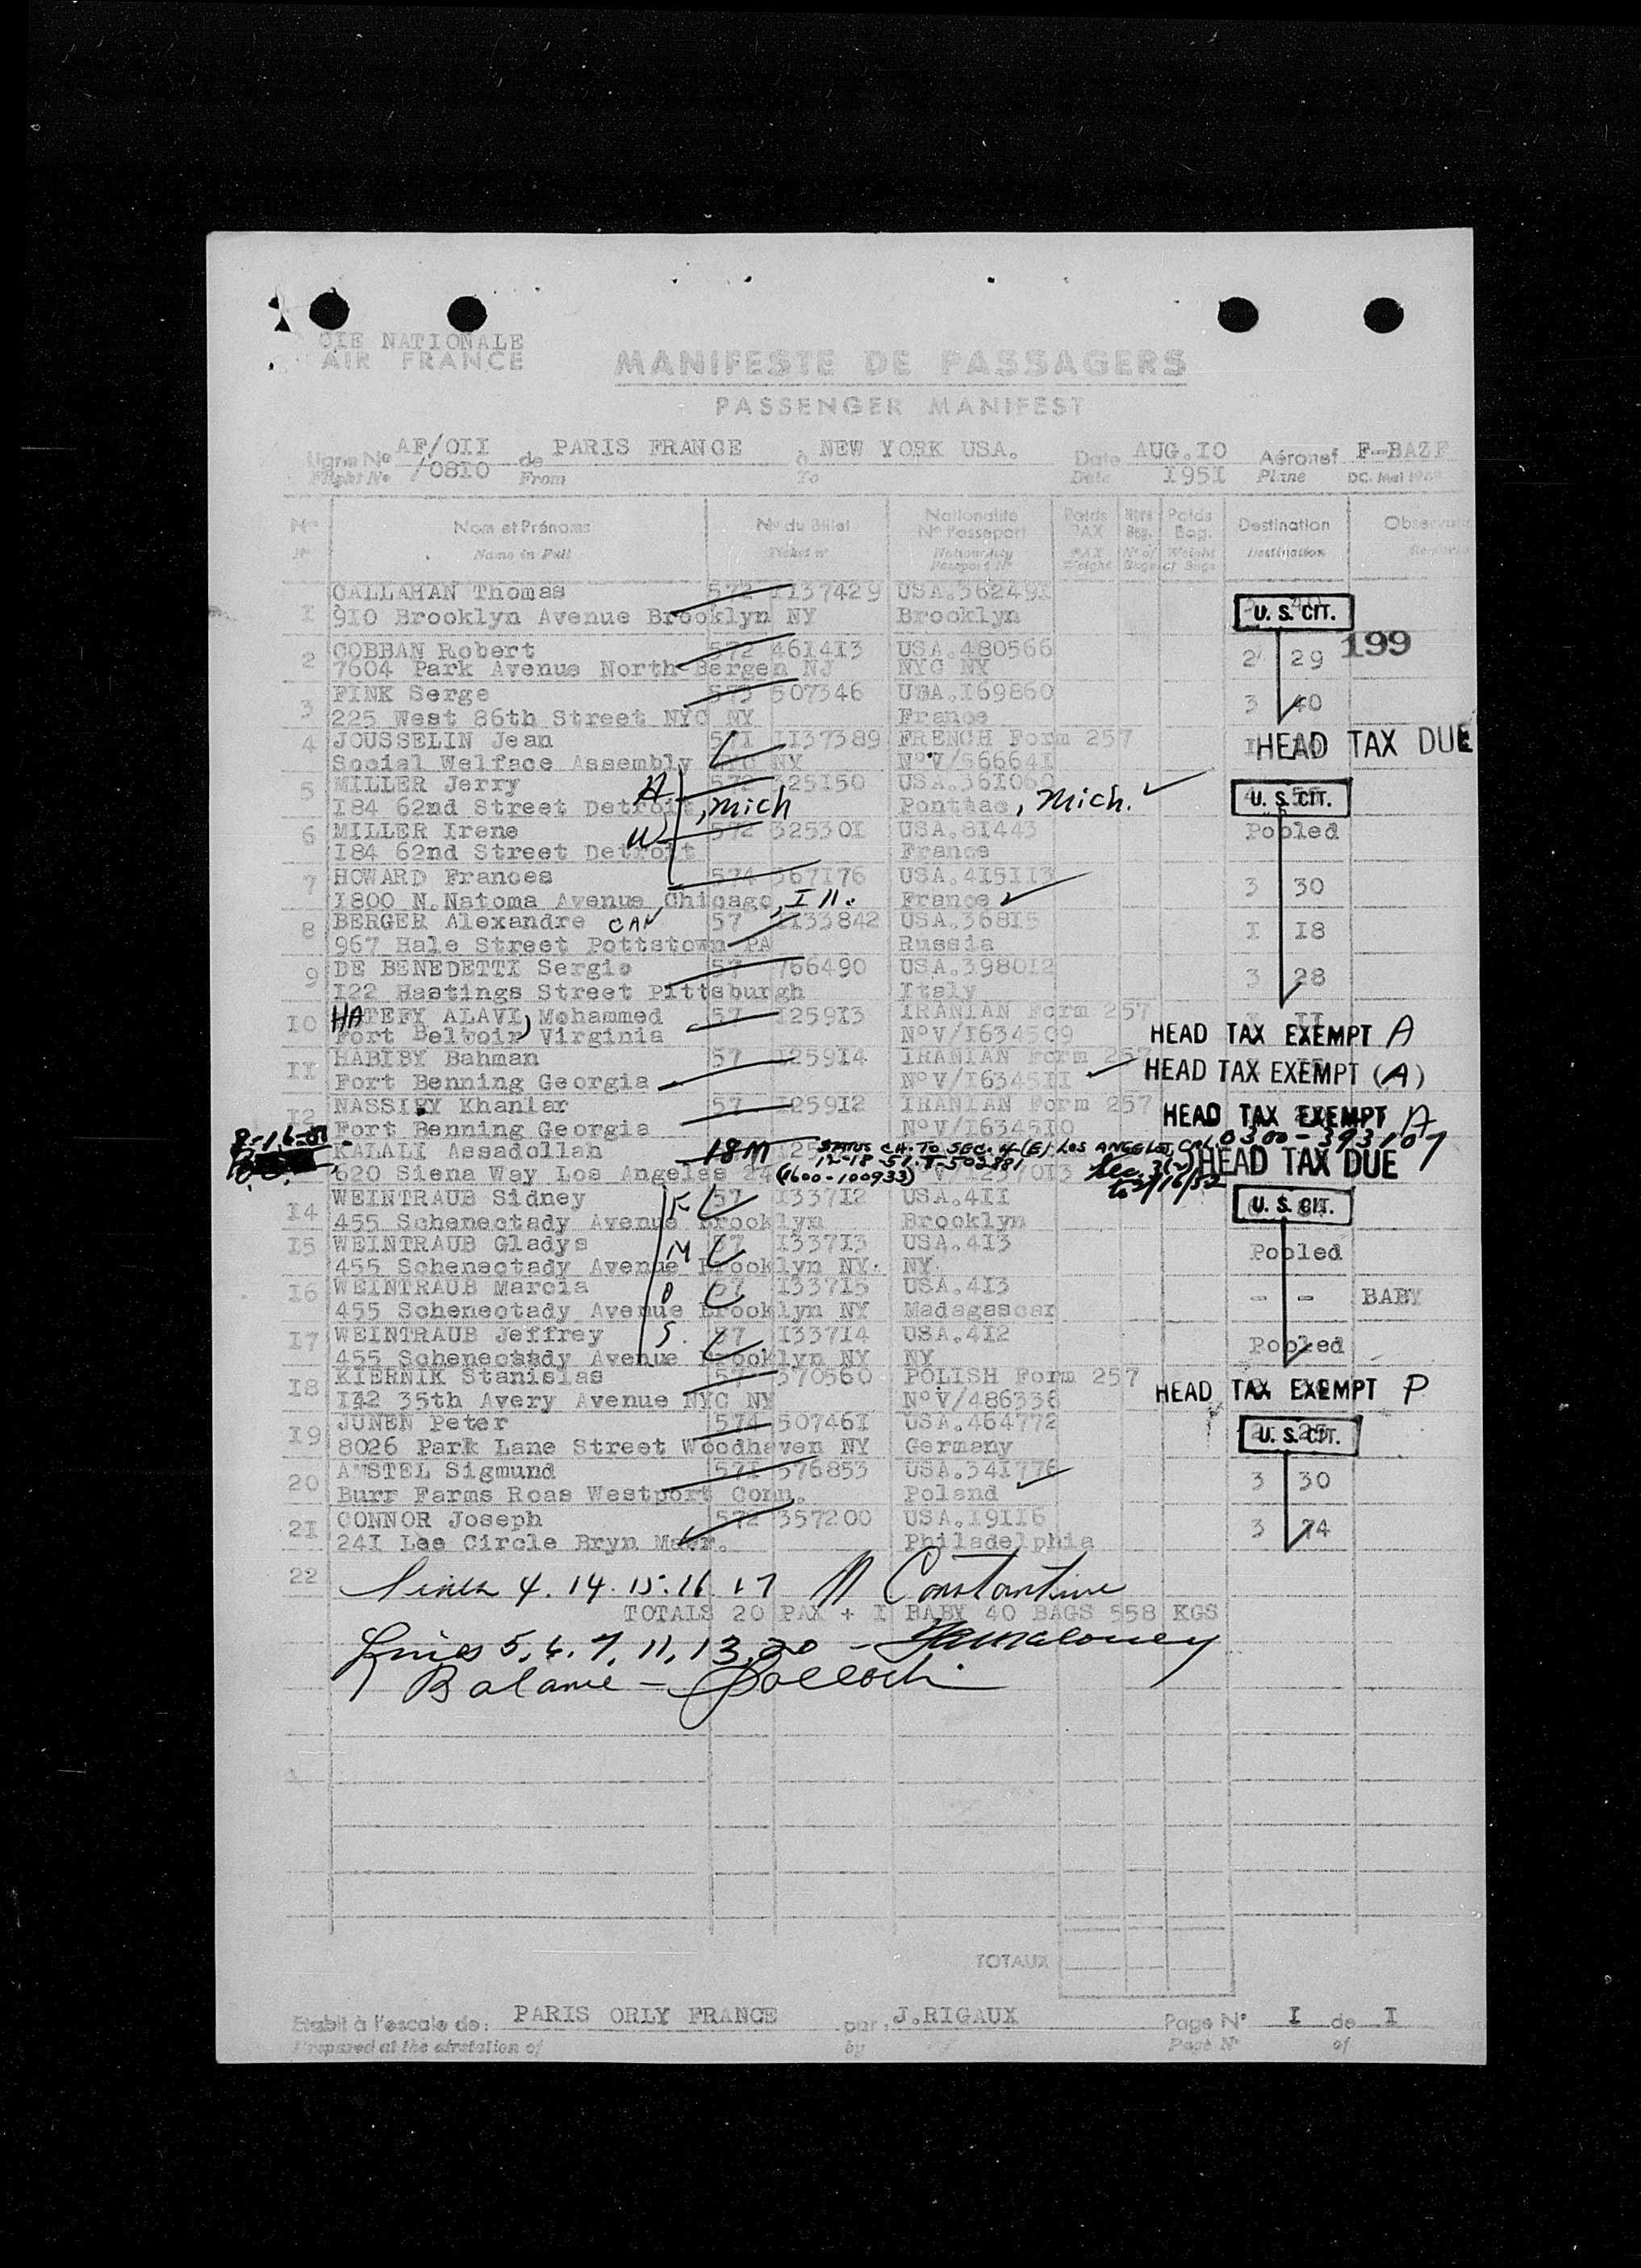 CIE NATIONALE
AIR FRANCE
MANIFESTE DE PASSAGERS
PASSENGER MANIFEST
Ligne Nº AF/OII de PARIS FRANCE à NEW YORK USA. Date AUG.IO Aéronef F-BAZF
Flight Nº /O8IO From To Date I95I Plane DC.
Nº Nom et Prénoms Nº du Billet Nationalité Nº Passeport Poids PAX Nbre Bag. Poids Bag. Destination
Nº Name in Full Ticket nº Nationality Passport Nº PAX Weight Nº of Bags Weight of Bags Destination
CALLAHAN Thomas 572 II37429 USA.36249I
I 9IO Brooklyn Avenue Brooklyn NY Brooklyn U. S. CIT.
199
COBBAN Robert 572 46I4I3 USA.480566
2 7604 Park Avenue North Bergen NJ NYC NY 2 29
FINK Serge 573 507346 USA.I69860
3 225 West 86th Street NYC NY France 3 40
4 JOUSSELIN Jean 57I II37389 FRENCH Form 257 HEAD TAX DUE
Social Welface Assembly NYC NY NºV/56664I
5 MILLER Jerry H 572 325I50 USA.36I060
I84 62nd Street Detroit, Mich Pontiac, Mich. U. S. CIT.
6 MILLER Irene W 572 32530I USA.8I443 Pooled
I84 62nd Street Detroit France
7 HOWARD Frances 574 367I76 USA.4I5II3 3 30
I800 N.Natoma Avenue Chicago, Ill. France
8 BERGER Alexandre 57 II33842 USA.368I5 I I8
967 Hale Street Pottstown PA Russia
9 DE BENEDETTI Sergio 57 766490 USA.3980I2 3 28
I22 Hastings Street Pittsburgh Italy
IO HATEFY ALAVI, Mohammed 57 I259I3 IRANIAN Form 257
Fort Belvoir Virginia NºV/I634509 HEAD TAX EXEMPT A
II HABIBY Bahman 57 I259I4 IRANIAN Form 257
Fort Benning Georgia NºV/I6345II HEAD TAX EXEMPT (A)
I2 NASSIRY Khanlar 57 I259I2 IRANIAN Form 257 HEAD TAX EXEMPT A
Fort Benning Georgia NºV/I6345IO
KALALI Assadollah 18M STATUS CH. TO SEC. 4(E) LOS ANGELES, CAL 0300-393107
620 Siena Way Los Angeles 24 12-18-51. (1600-100933) V/I2370I3 HEAD TAX DUE
I4 WEINTRAUB Sidney F 57 I337I2 USA.4II U. S. CIT.
455 Schenectady Avenue Brooklyn Brooklyn
I5 WEINTRAUB Gladys M 57 I337I3 USA.4I3 Pooled
455 Schenectady Avenue Brooklyn NY. NY.
I6 WEINTRAUB Marcia D 57 I337I5 USA.4I3 - - BABY
455 Schenectady Avenue Brooklyn NY Madagascar
I7 WEINTRAUB Jeffrey S. 57 I337I4 USA.4I2 Pooled
455 Schenectady Avenue Brooklyn NY NY
I8 KIERNIK Stanislas 57 370560 POLISH Form 257
I42 35th Avery Avenue NYC NY NºV/486336 HEAD TAX EXEMPT P
I9 JUNEN Peter 574 50746I USA.464772
8026 Park Lane Street Woodhaven NY Germany U. S. CIT.
20 AMSTEL Sigmund 57I 376853 USA.34I776 3 30
Burr Farms Roas Westport Conn. Poland
2I CONNOR Joseph 572 357200 USA.I9II6 3 74
24I Lee Circle Bryn Mawr. Philadelphia
22 Lines 4. 14. 15. 16 17 Constantine
TOTALS 20 PAX + I BABY 40 BAGS 558 KGS
Lines 5, 6, 7, 11, 13, 20 - Maloney
Balance -
TOTAUX
Etabli à l'escale de: PARIS ORLY FRANCE par J.RIGAUX Page Nº I de I
Prepared at the airstation of by Page Nº of